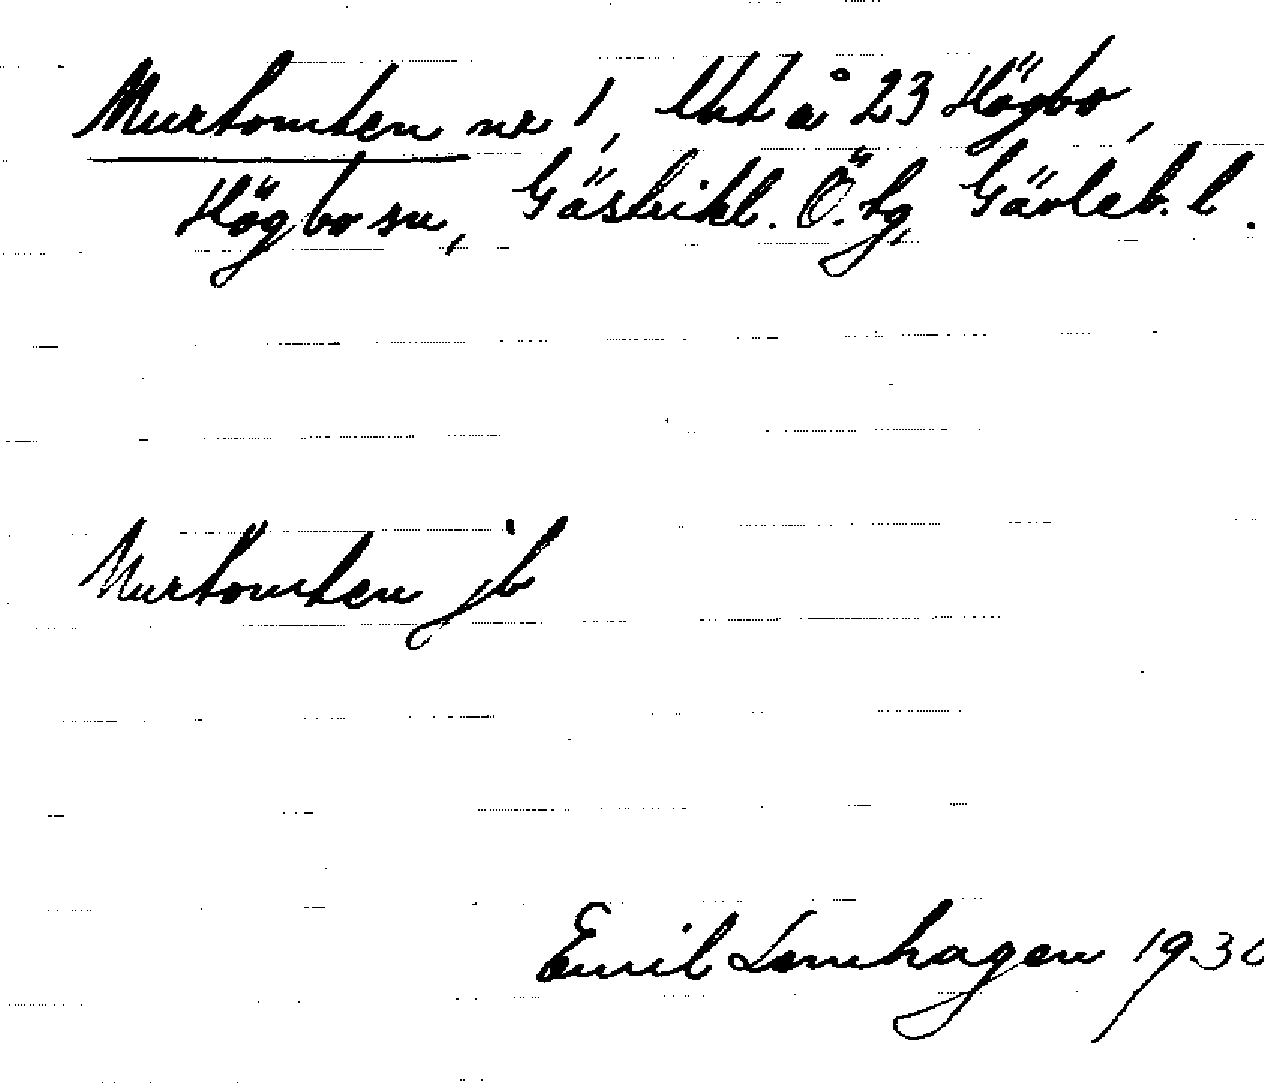 Murtomten nr 1, Utt å 23 Högbo,
Högbo sn, Gästrikl. Ö. tg, Gävleb. l.
Murtomten jb
Emil Lennhagen 1930